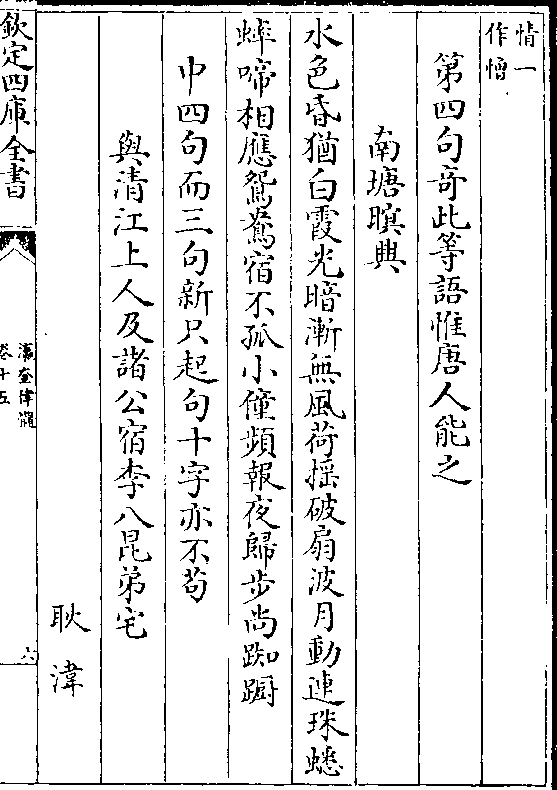 情一
作憎
第四句奇此等語惟唐人能之
南塘暝興
水色昏猶白霞光暗漸無風荷揺破扇波月動連珠蟋
蟀啼相應鴛鴦宿不孤小僮頻報夜歸步尚踟蹰
中四句而三句新只起句十字亦不苟
與清江上人及諸公宿李八昆弟宅
耿湋
欽定四庫全書
瀛奎律髓
卷十五
六